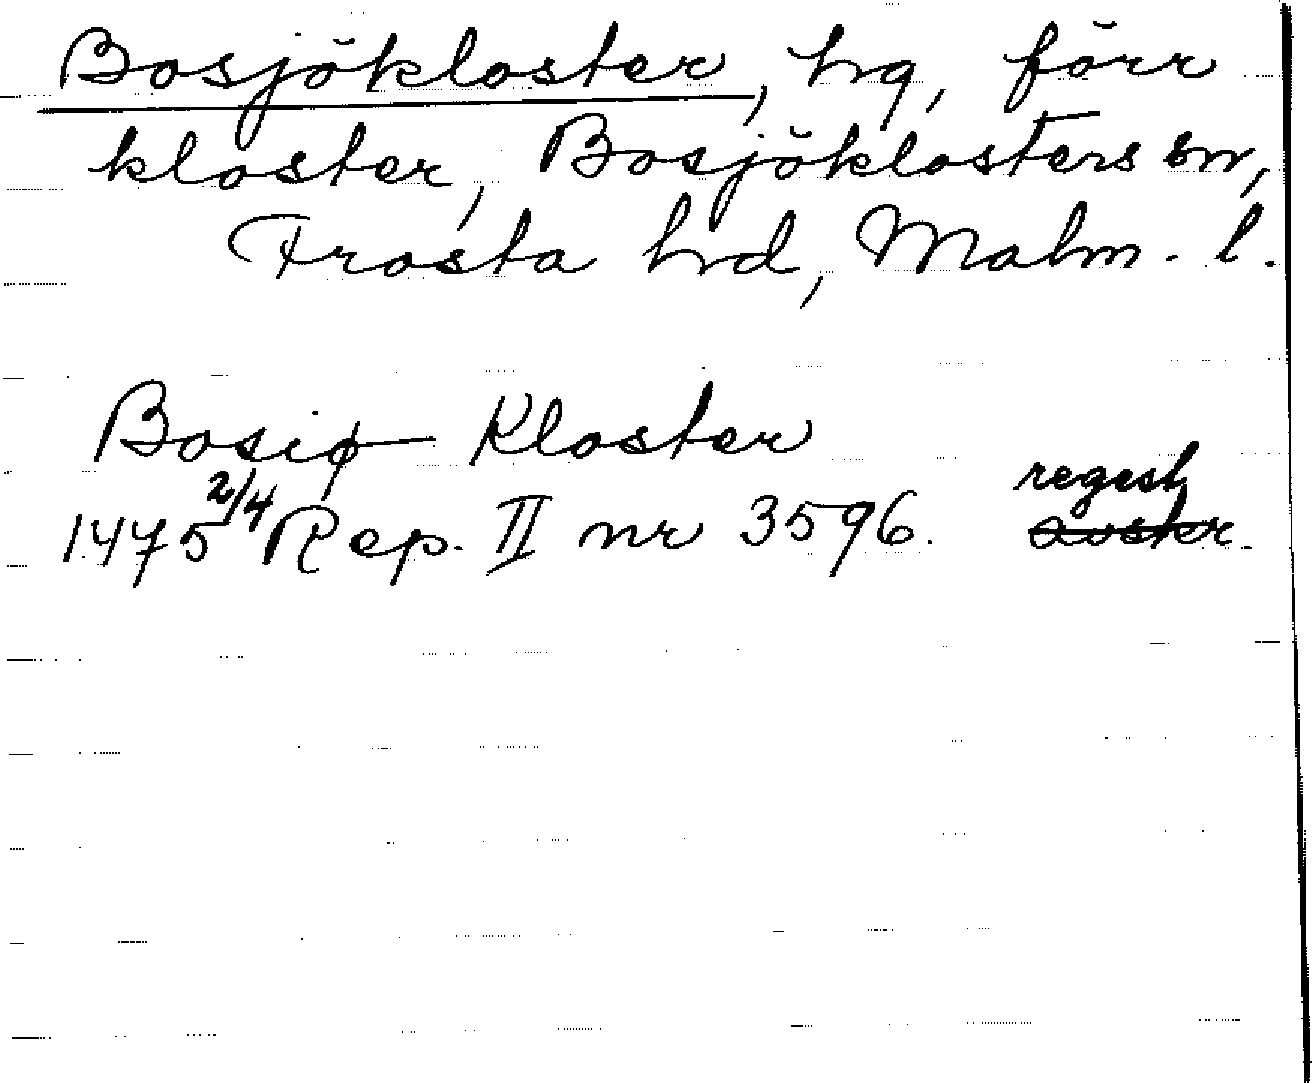 Bosjökloster, hg, förr
kloster, Bosjöklosters sn,
Frosta hd, Malm. l.
Bosiø Kloster
regest
1475 2/4 Rep. II nr 3596.